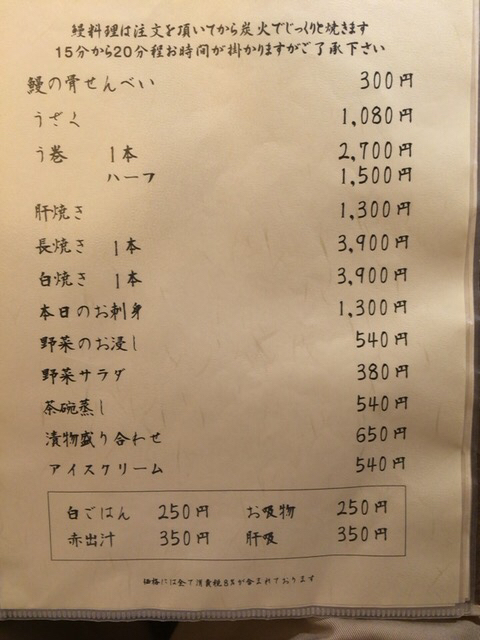 鰻料理は注文を頂いてから炭火でじっくりと焼きます
15分から20分程お時間が掛かりますがご了承下さい
鰻の骨せんべい 300円
うざく 1,080円
う巻 1本 2,700円
ハーフ 1,500円
肝焼き 1,300円
長焼き 1本 3,900円
白焼き 1本 3,900円
本日のお刺身 1,300円
野菜のお浸し 540円
野菜サラダ 380円
茶碗蒸し 540円
漬物盛り合わせ 650円
アイスクリーム 540円
白ごはん 250円 お吸物 250円
赤出汁 350円 肝吸 350円
価格には全て消費税8%が含まれております